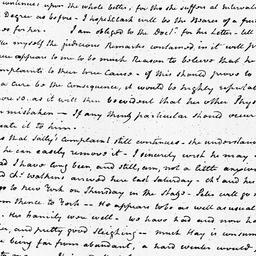 continues upon the whole better, for tho she suffers at intervals
Degree as before. I hope Clark will be the Bearer of a fur
so for her. I am obliged to the Doctr. for her Letter. tell
the myself the judicious Remarks contained in it will pr
ere appears to me to be much Reason to believe that he
omplaints to their true Causes. if this should prove to
a Cure be the Consequence, it would be highly reputat
ore so, as it will then be evident that her other Phys
n mistaken — If any thing particular should occur
ate it to him.
s that Sally's Complaint still continues. she understan
he can easily remove it. I sincerely wish he may
d I have long been, and still am, not a little anxiou
d Chs. Watkins arrived here last Saturday. Chs. and he
go to New York on Thursday in the Stage. Peter will go
om thence to York — He appears to be as well as usual
. Her Family now well. We have had and now ha
er, and pretty good Sleighing — much Hay is consum
e being far from abundant, a hard winter would